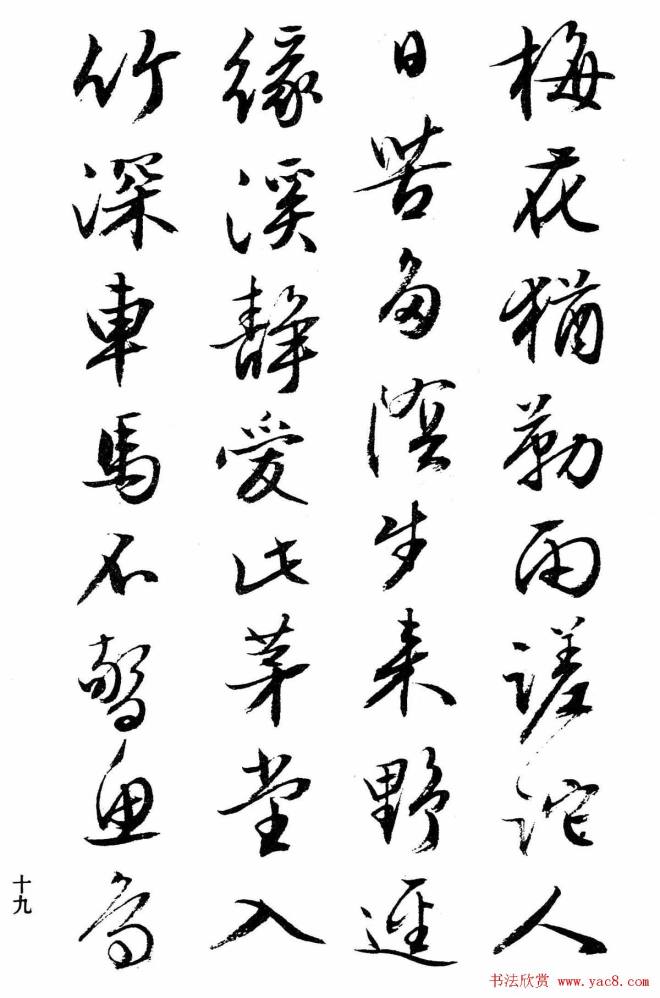 梅花猶勒雨蹉跎人
日苦多陰步来野逕
緣溪靜愛此茅堂入
竹深車馬不驚魚鳥
十九
书法欣赏 www.yac8.com